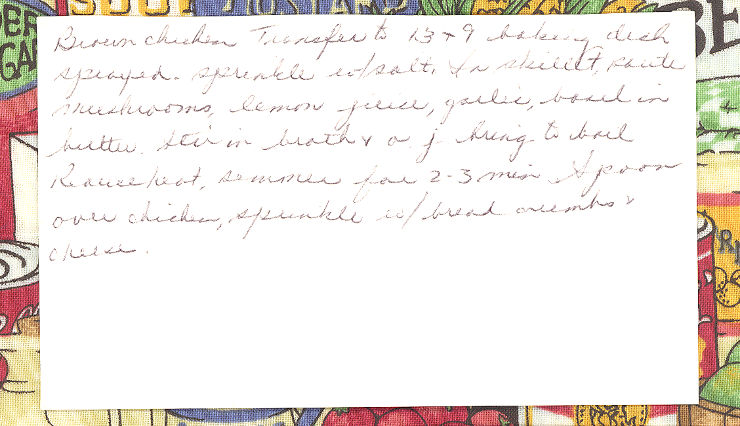 BER
GA
MUSTARD
BE
Brown chicken Transfer to 13 + 9 baking dish
sprayed. sprinkle w/salt. In skillet, saute
mushrooms, lemon jucie, garlic, basel in
butter. Stir in broth & o. j bring to boil
Reduce heat, semmer for 2-3 min Spoon
over chicken, sprinkle w/ bread crumbs &
cheese.